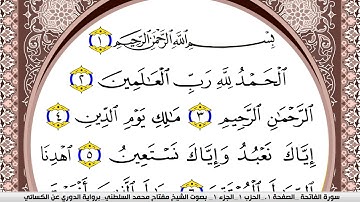 بِسْمِ اللَّهِ الرَّحْمَٰنِ الرَّحِيمِ ١
الْحَمْدُ لِلَّهِ رَبِّ الْعَالَمِينَ ٢
الرَّحْمَٰنِ الرَّحِيمِ ٣ مَالِكِ يَوْمِ الدِّينِ ٤
إِيَّاكَ نَعْبُدُ وَإِيَّاكَ نَسْتَعِينُ ٥ اهْدِنَا
سورة الفاتحة _ الصفحة ١ _ الحزب ١ _ الجزء ١ _ بصوت الشيخ مفتاح محمد السلطني _ برواية الدوري عن الكسائي